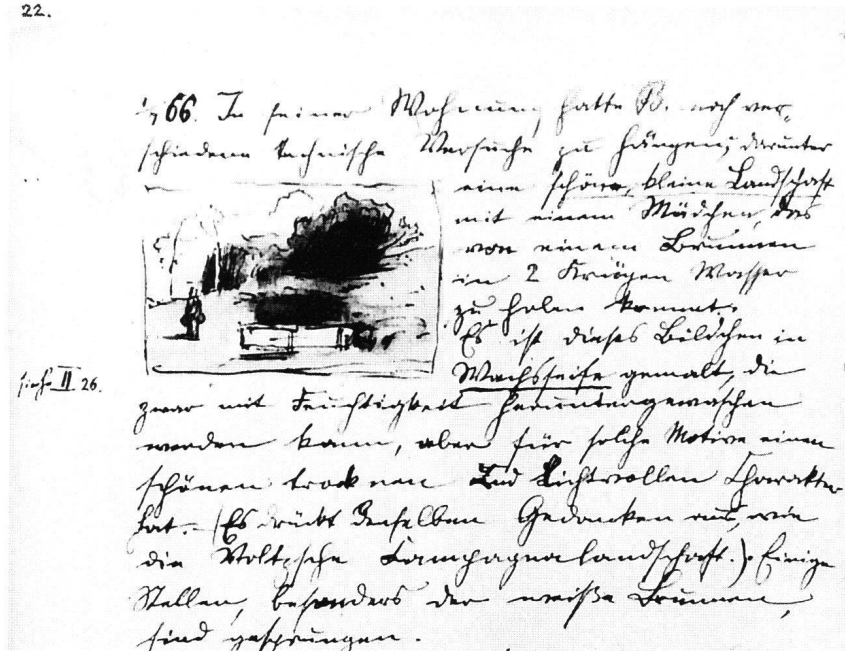 22.
66. In seiner Wohnung hatte B. noch ver-
schiedene technische Versuche zu hängen; darunter
eine schöne, kleine Landschaft
mit einem Mädchen, das
von einem Brunnen
in 2 Krügen Wasser
zu holen kommt.
Es ist dieses Bildchen in
Wachsseife gemalt, die
siehe II 26.
zwar mit Feuchtigkeit heruntergewaschen
werden kann, aber für solche Motive einen
schönen trocknen und lichtvollen Charakter
hat. (Es drückt denselben Gedanken aus, wie
die Campagnalandschaft.). Einige
Stellen, besonders der weiße Brunnen,
sind gesprungen.